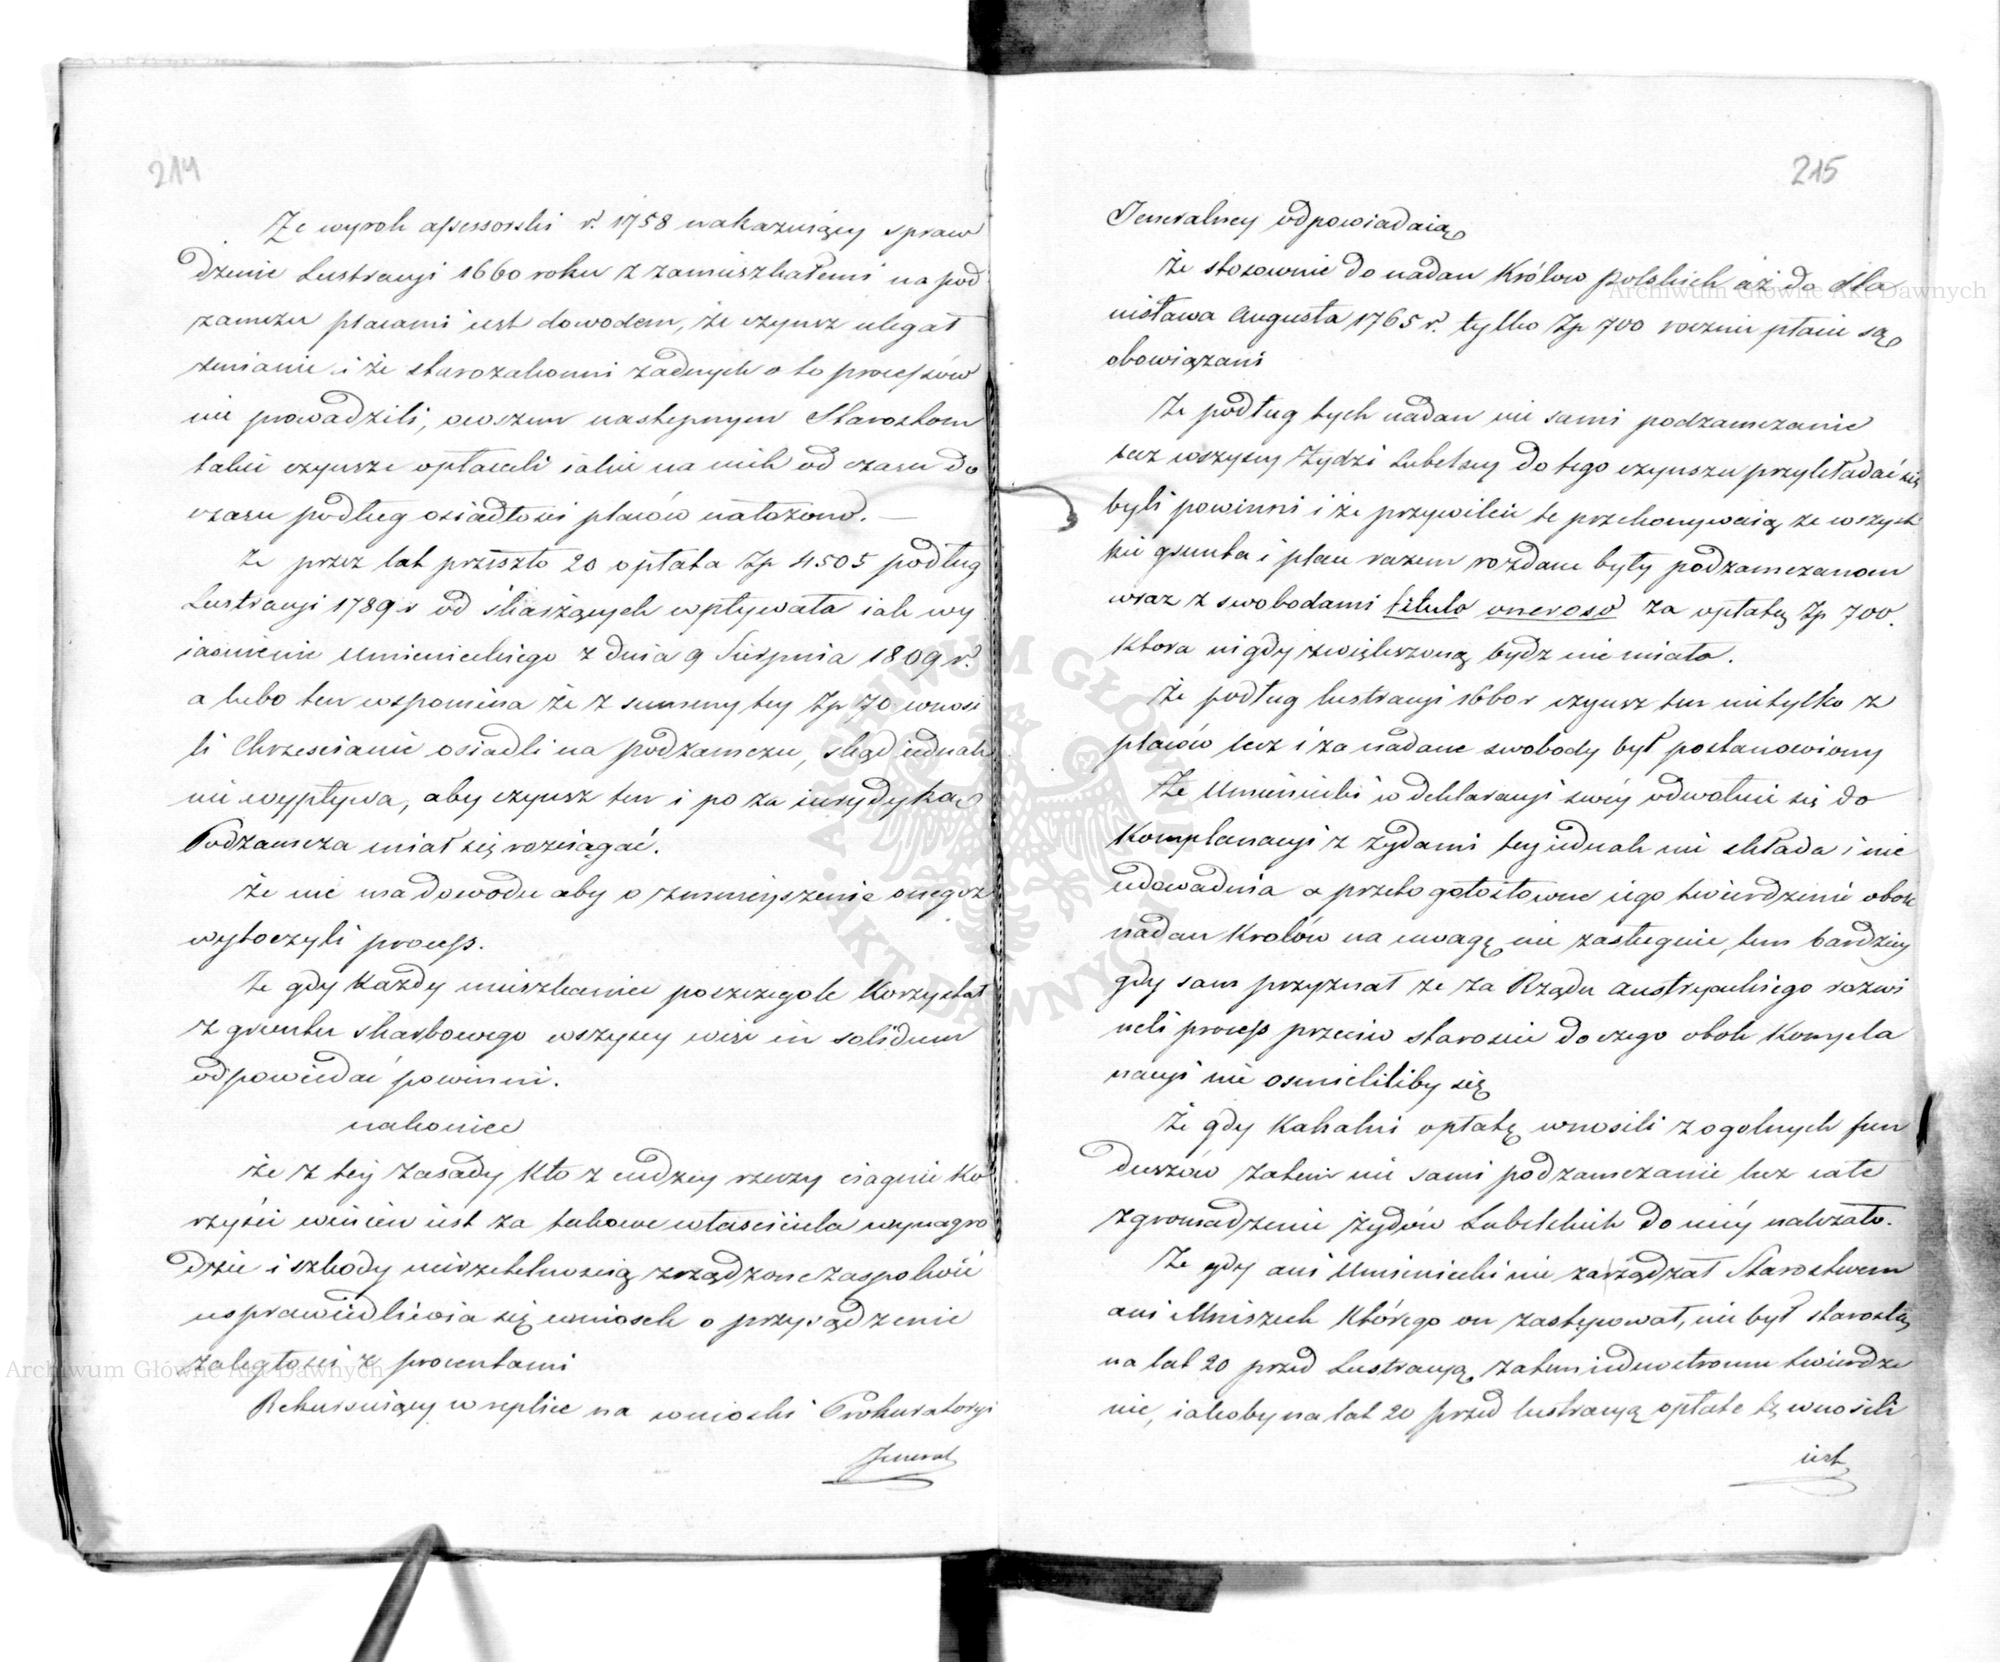 214
Że wyrok assessorski r. 1758 nakazuiący spraw
dzenie Lustracyi 1660 roku z zamieszkałemi na pod
zamczu placami iest dowodem, że czynsz ulegał
zmianie i że starozakonni żadnych o to processów
nie prowadzili, owszem następnym Starostom
takie czynsze opłacali iakie na nich od czasu do
czasu podług osiadłości placów nałożono. —
że przez lat przeszło 20 opłata Zp 4505 podług
Lustracyi 1789 r od skarżących wpływała iak wy
iaśnienie Umienieckiego z dnia 9 Sierpnia 1809 r.
a lubo ten wspomina że z summy tey Zp 70 wnosi
li Chrzescianie osiedli na podzamczu, skąd iednak
nie wypływa, aby czynsz ten i po za iurydyką
Podzamcza miał się rozciągać.
że nie ma dowodu aby o zmnieyszenie onegoż
wytoczyli process.
że gdy każdy mieszkaniec poszczegole korzystał
z gruntu skarbowego wszyscy więc in solidum
odpowiedać powinni.
nakoniec
że z tey zasady kto z cudzey rzeczy ciągnie ko
rzyści winien iest za takowe właściciela wynagro
dzić i szkody nierzetelnością zrządzone zaspokoić
usprawiedliwia się wniosek o przysądzenie
zaległości z procentami
Rekursuiący w replice na wnioski Prokuratoryi
Jeneral
215
Jeneralney odpowiadaią
że stosownie do nadan Królow polskich aż do Sta
nisława Augusta 1765 r. tylko Zp 700 rocznie płacić są
obowiązani
że podług tych nadan nie sami podzamczanie
lecz wszyscy Żydzi Lubelscy do tego czynszu przykładać się
byli powinni i że przywileie te przekonywaią że wszyst
kie grunta i place razem rozdane były podzamczanom
wraz z swobodami titulo oneroso za opłatę Zp 700.
ktora nigdy zwiększoną bydz nie miała.
że podług lustracyi 1660 r czynsz ten nietylko z
placów lecz i za nadane swobody był postanowiony
że Umieniecki w deklaracyi swéy odwołuie się do
Komplanacyi z żydami tey iednak nie składa i nie
udowadnia a przeto gołosłowne iego twierdzenie obok
nadan Krolów na uwagę nie zasługuie, tem bardziey
gdy sam przyznał że za Rządu austryackiego rozwi
neli process przeciw staroscie do czego obok Kompla
nacyi nie osmieliliby się
że gdy Kahalni opłatę wnosili z ogolnych fun
duszów zatem nie sami podzamczanie lecz całe
zgromadzenie żydów Lubelskich do niéy należało.
że gdy ani Umieniecki nie zarządzał Starostwem
ani Mniszech którego on zastępował, nie był starostą
na lat 20 przed Lustracyą, zatem iednostronne twierdze
nie, iakoby na lat 20 przed lustracyą opłate tę wnosili
iest
Archiwum Główne Akt Dawnych
Archiwum Główne Akt Dawnych
ARCHIWUM GŁÓWNE AKT DAWNYCH